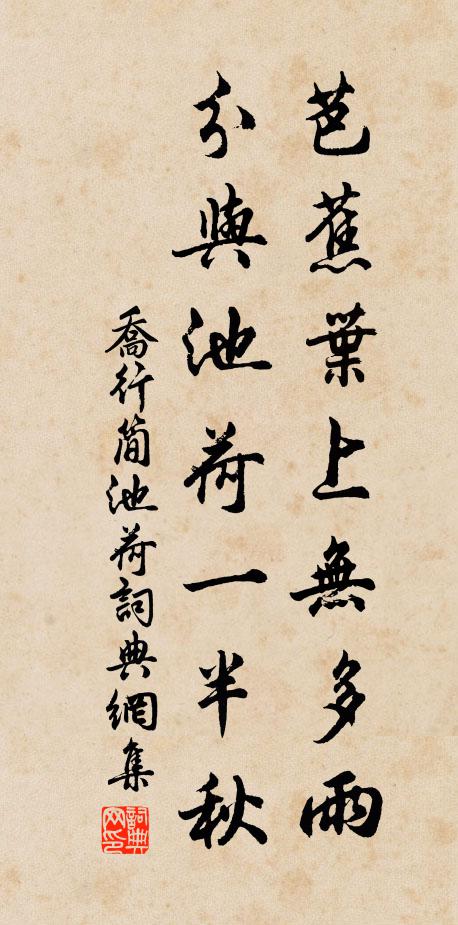 芭蕉葉上無多雨
分與池荷一半秋
喬行簡池荷詞典網集
詞典網印